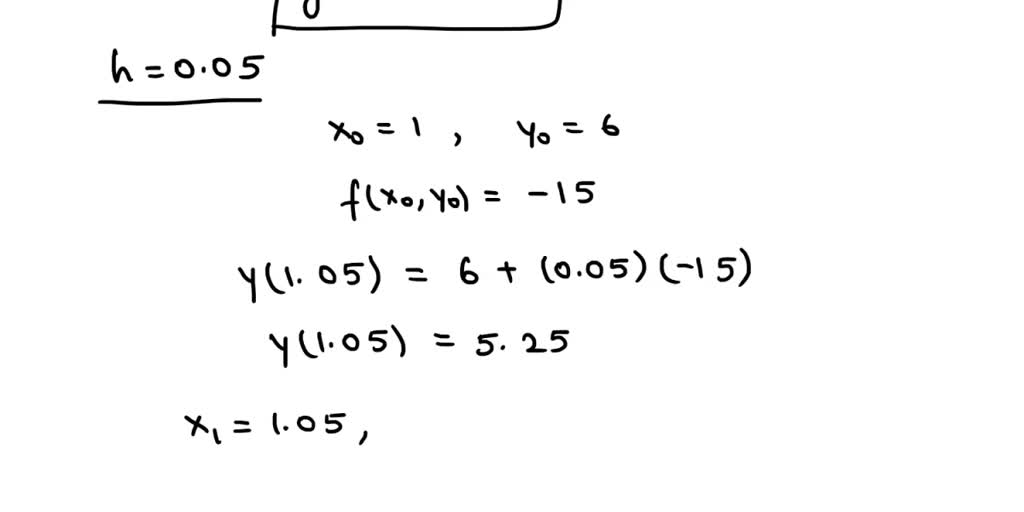 h = 0.05
x₀ = 1 , y₀ = 6
f(x₀, y₀) = -15
y(1.05) = 6 + (0.05)(-15)
y(1.05) = 5.25
x₁ = 1.05,